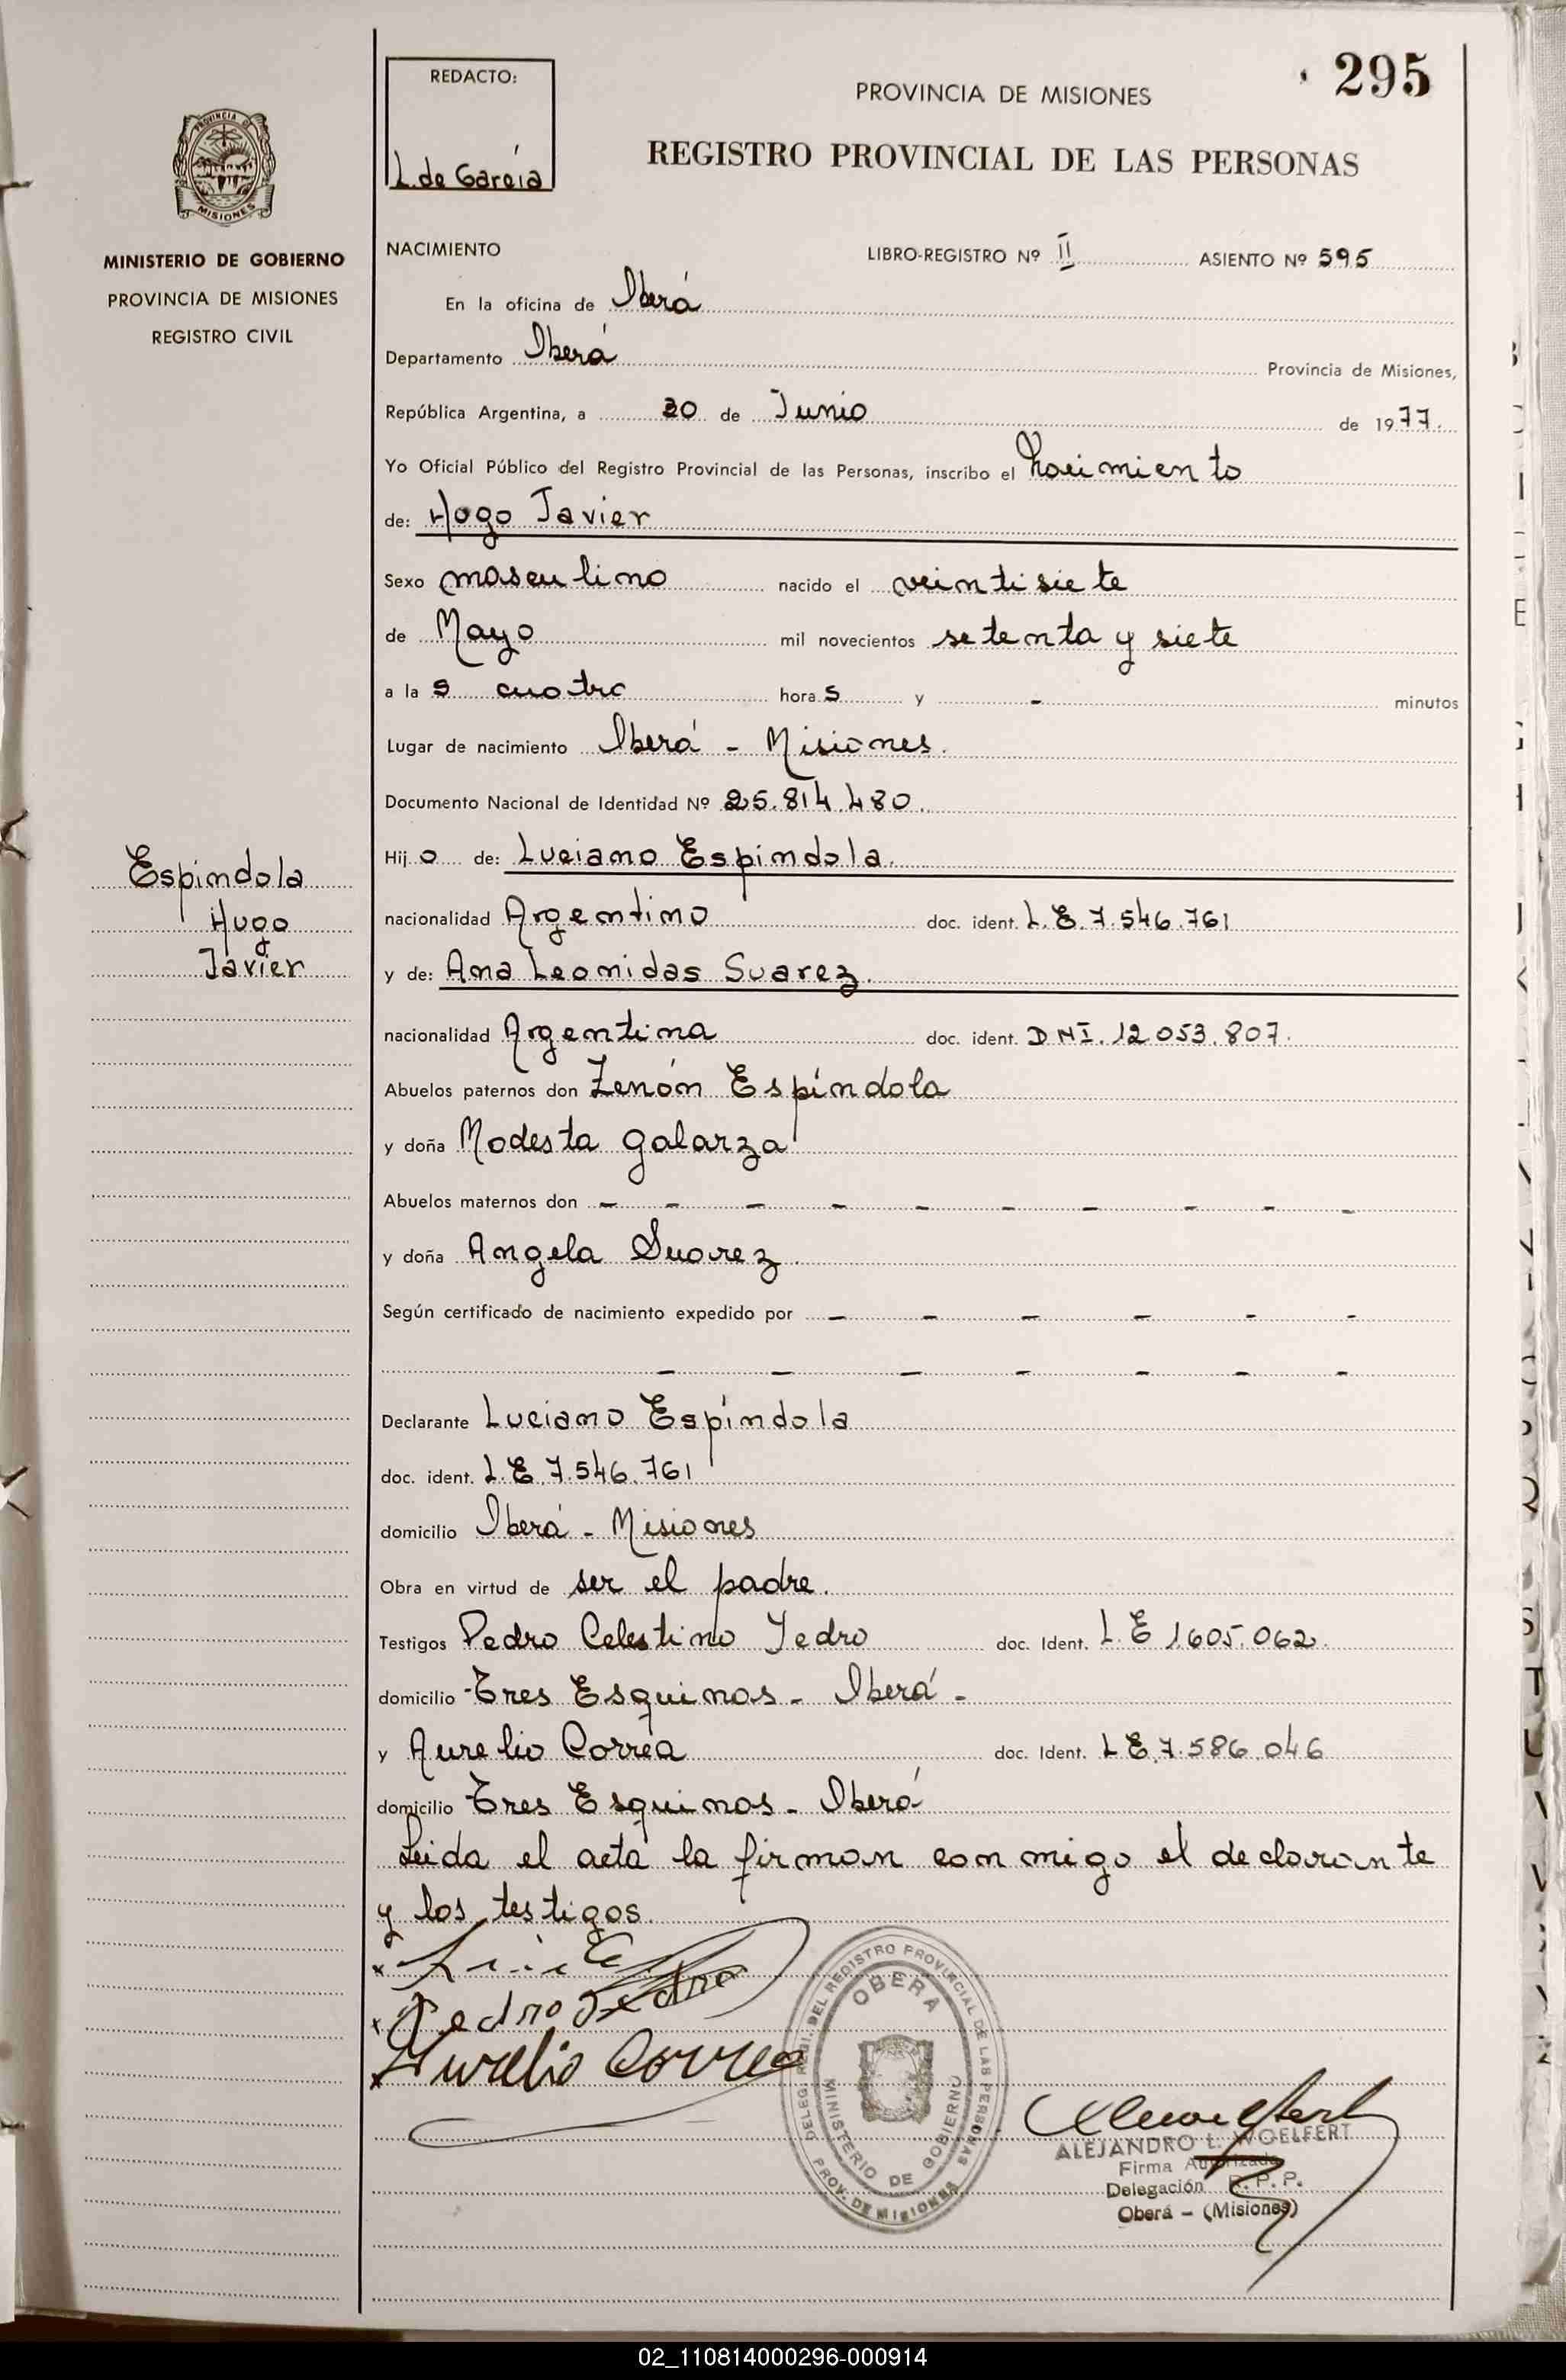 295
REDACTO:
L. de García
PROVINCIA DE MISIONES
REGISTRO PROVINCIAL DE LAS PERSONAS
PROVINCIA D
MISIONES
MINISTERIO DE GOBIERNO
PROVINCIA DE MISIONES
REGISTRO CIVIL
NACIMIENTO LIBRO-REGISTRO Nº II ASIENTO Nº 595
En la oficina de Oberá
Departamento Oberá Provincia de Misiones,
República Argentina, a 20 de Junio de 1977.
Yo Oficial Público del Registro Provincial de las Personas, inscribo el Nacimiento
de: Hugo Javier
Sexo masculino nacido el veintisiete
de Mayo mil novecientos setenta y siete
a la s cuatro hora s y - minutos
Lugar de nacimiento Oberá - Misiones.
Documento Nacional de Identidad Nº 25.814.480.
Hij o de: Luciano Espindola.
Espindola
Hugo
Javier
nacionalidad Argentino doc. ident. L.E.7.546.761
y de: Ana Leonidas Suarez.
nacionalidad Argentina doc. ident. DNI. 12.053.807.
Abuelos paternos don Zenón Espíndola
y doña Modesta Galarza
Abuelos maternos don - - - - - - - - - -
y doña Angela Suarez.
Según certificado de nacimiento expedido por - - - - - -
- - - - - - -
Declarante Luciano Espíndola
doc. ident. L.E 7.546.761
domicilio Oberá - Misiones
Obra en virtud de ser el padre.
Testigos Pedro Celestino Yedro doc. Ident. L.E 1.605.062.
domicilio Tres Esquinas - Oberá -
y Aurelio Correa doc. Ident. L E.7.586.046
domicilio Tres Esquinas - Oberá
Leida el acta la firman conmigo el declarante
y los testigos.
Pedro Yedro
Aurelio Correa
DELEG. DEL REGISTRO PROVINCIAL DE LAS PERSONAS
OBERA
MINISTERIO DE GOBIERNO
PROV. DE MISIONES
ALEJANDRO L. WOELFERT
Firma Autorizada
Delegación R. P. P.
Oberá - (Misiones)
02_110814000296-000914